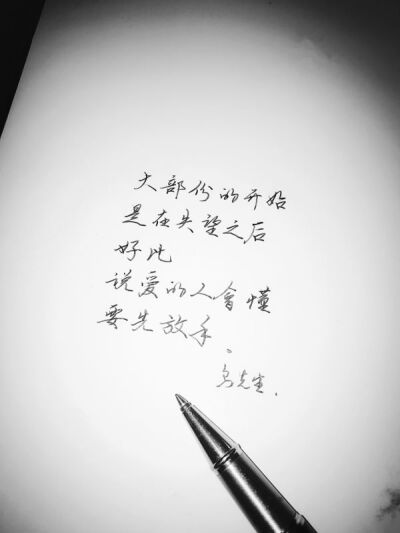 大部份的开始
是在失望之后
好比
说爱的人會懂
要先放手。
乌先生.